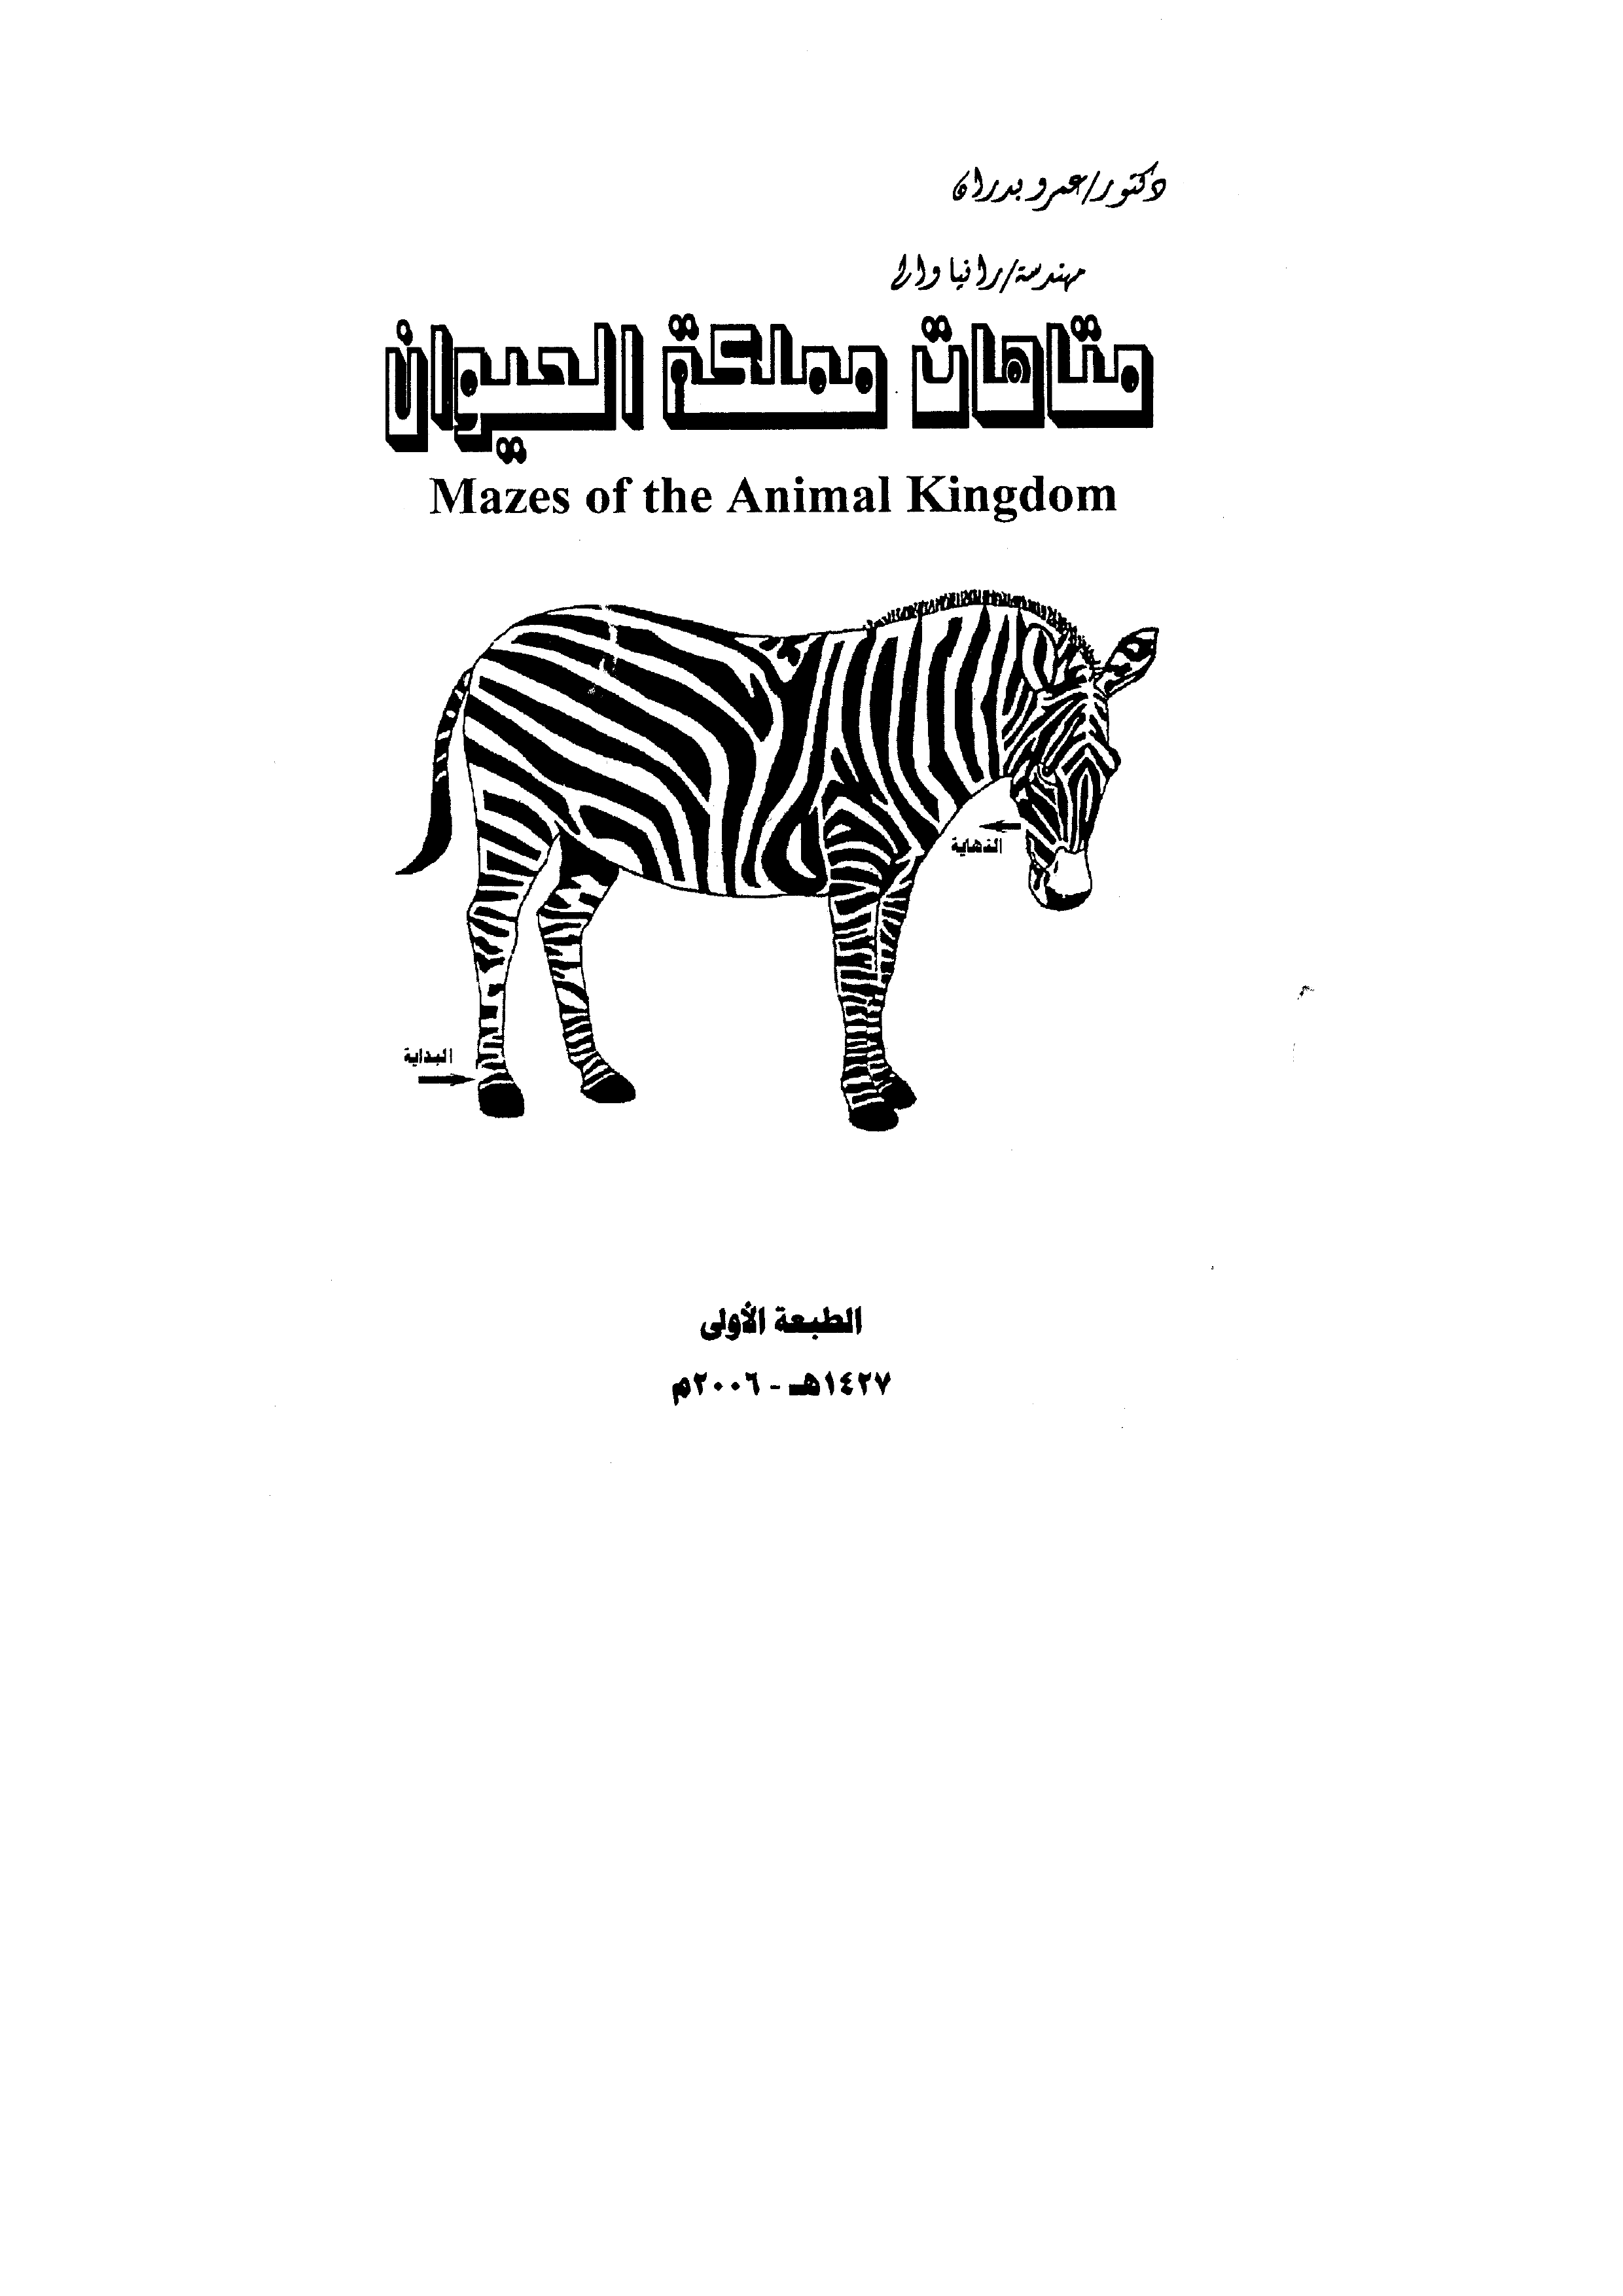 دكتور/عمرو بدران
مهندسة/رانيا وائل
متاهات مملكة الحيوان
Mazes of the Animal Kingdom
النهاية
البداية
الطبعة الأولى
١٤٢٧هـ - ٢٠٠٦م